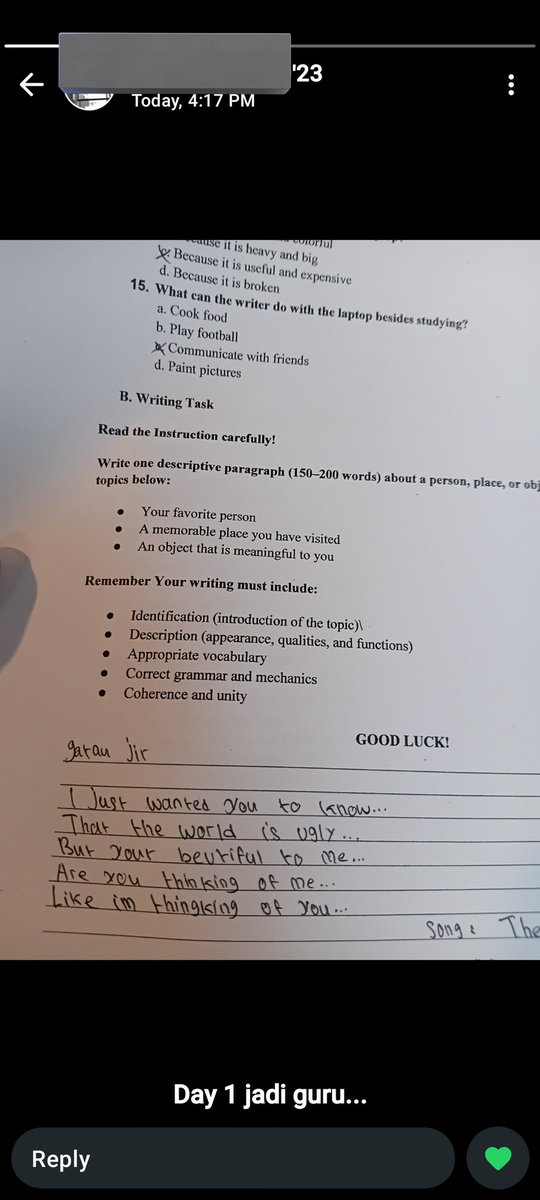 '23
Today, 4:17 PM
colorful
it is heavy and big
c. Because it is useful and expensive
d. Because it is broken
15. What can the writer do with the laptop besides studying?
a. Cook food
b. Play football
Communicate with friends
d. Paint pictures
B. Writing Task
Read the Instruction carefully!
Write one descriptive paragraph (150–200 words) about a person, place, or obj
topics below:
• Your favorite person
• A memorable place you have visited
• An object that is meaningful to you
Remember Your writing must include:
• Identification (introduction of the topic)\
• Description (appearance, qualities, and functions)
• Appropriate vocabulary
• Correct grammar and mechanics
• Coherence and unity
GOOD LUCK!
gatau jir
I Just wanted you to know...
That the world is ugly...
But your beutiful to me...
Are you thinking of me...
Like im thingking of you...
Song: The
Day 1 jadi guru...
Reply